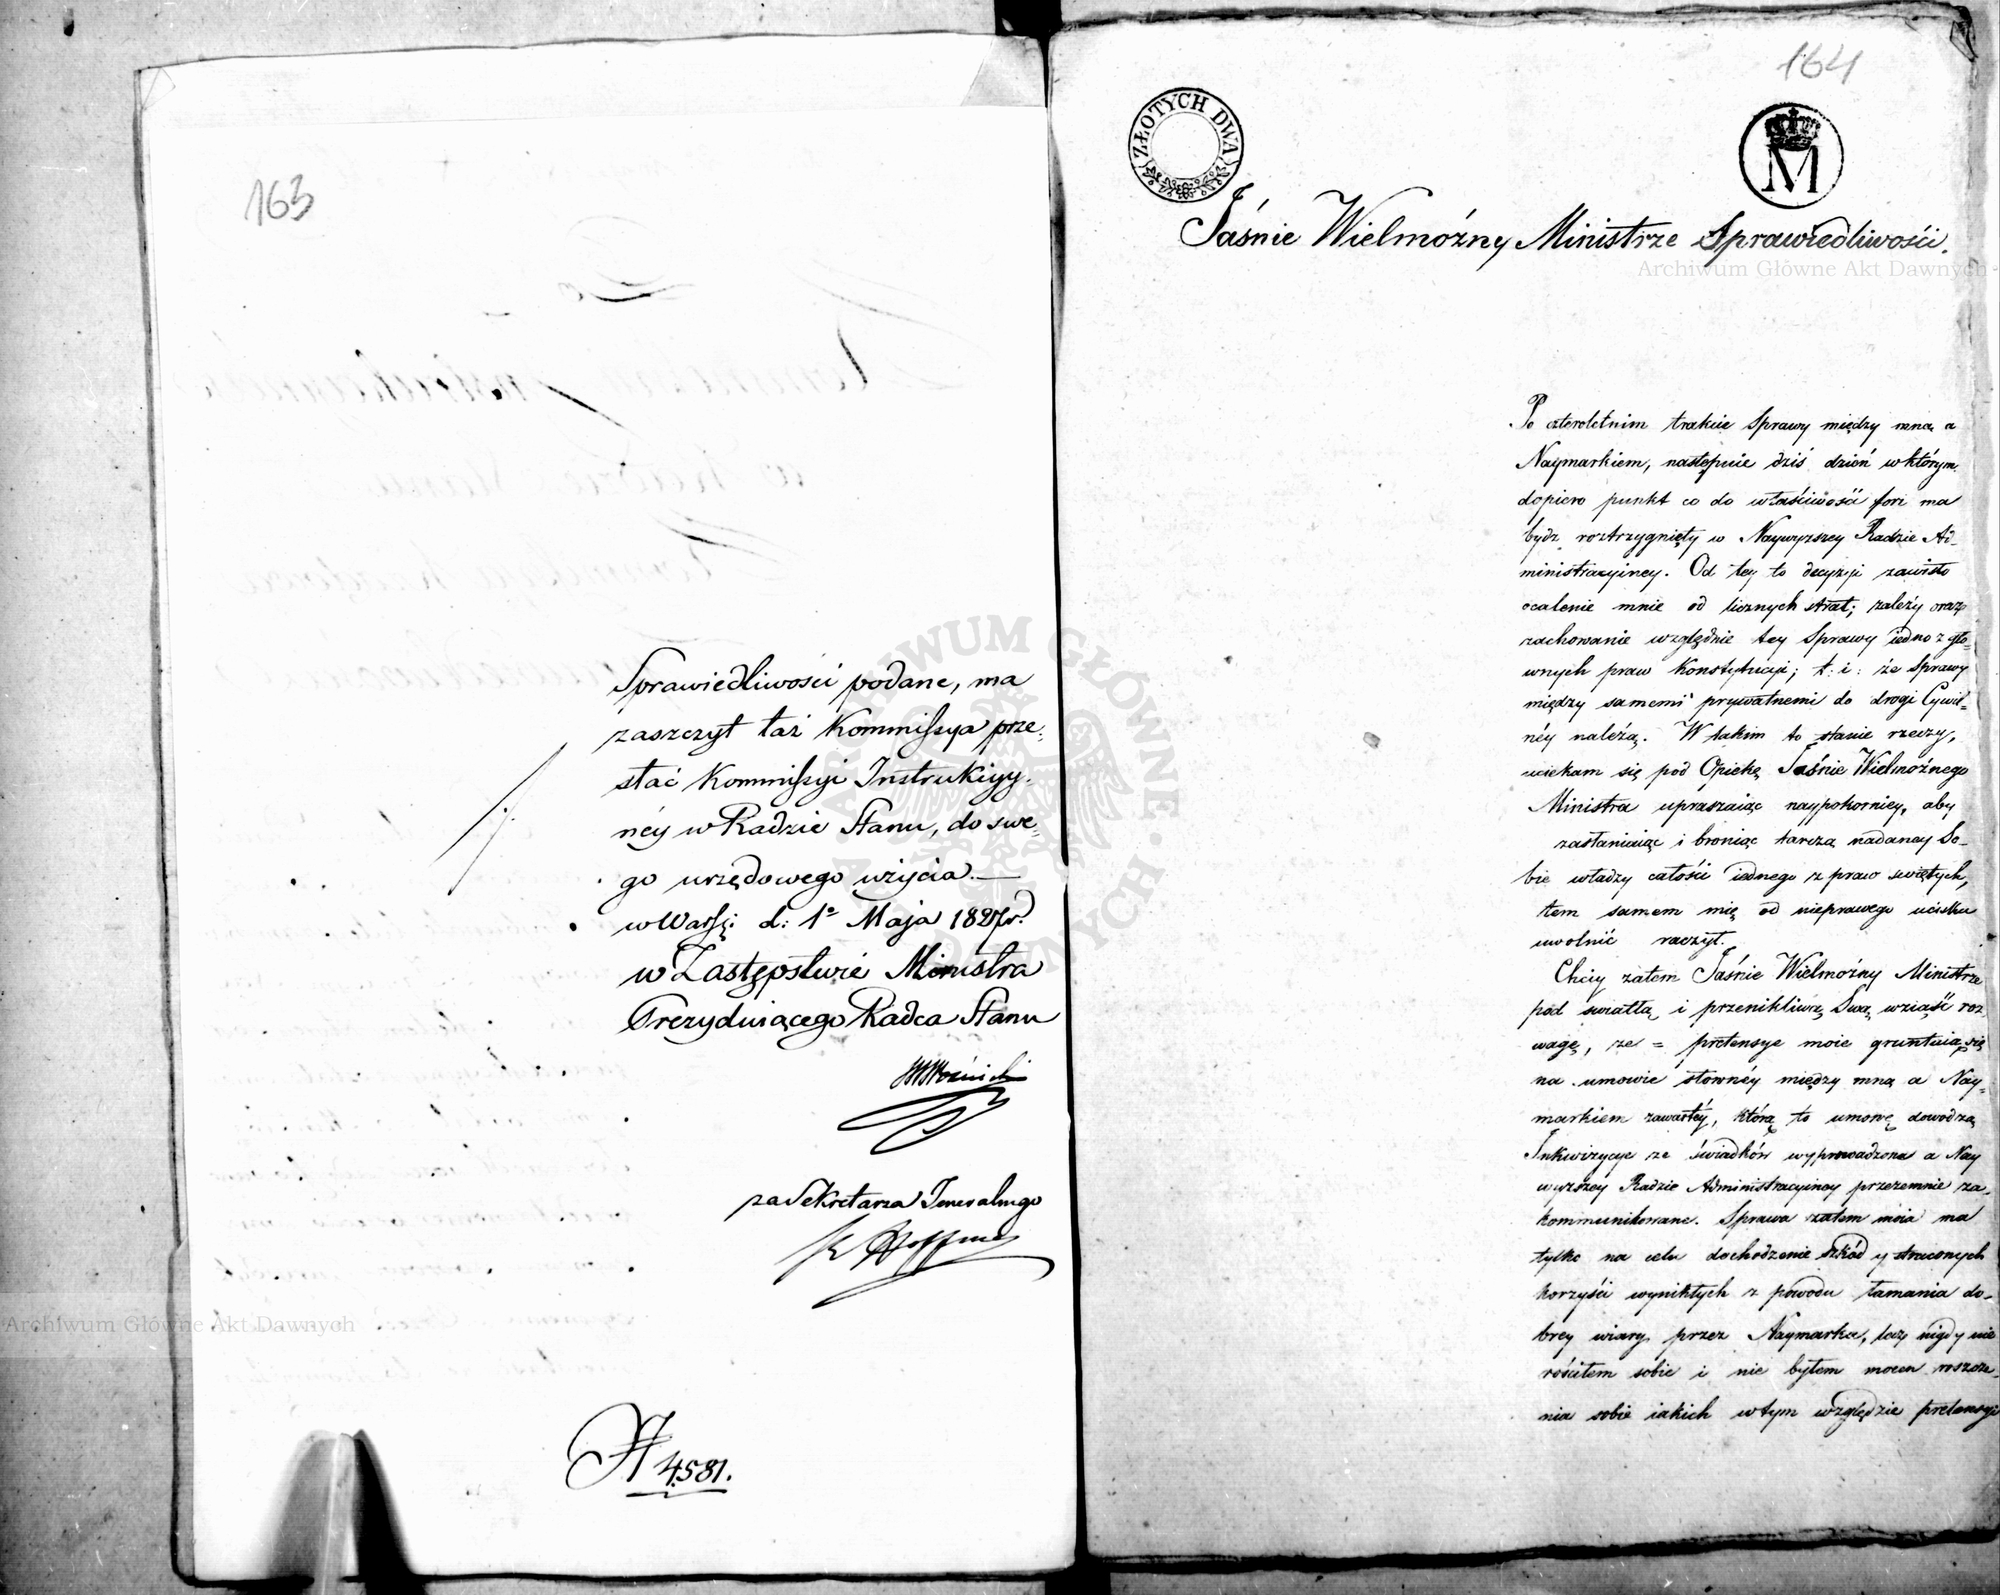 163
Sprawiedliwości podane, ma
zaszczyt taż Kommissya prze-
słać Kommissyi Instrukcyy-
néy w Radzie Stanu, do swe-
go urzędowego użycia.
w Warsz: d: 1º Maja 1827 r.
w Zastępstwie Ministra
Prezyduiącego Radca Stanu
MWoźnicki
za Sekretarza Jeneralnego
K Hoffman
4581.
164
ZŁOTYCH DWA
M
Jaśnie Wielmożny Ministrze Sprawiedliwości.
Po czteroletnim trakcie Sprawy między mną a
Naymarkiem, następuie dziś dzień w którym
dopiero punkt co do właściwości fori ma
bydz roztrzygnięty w Naywyzszey Radzie Ad-
ministracyiney. Od tey to decyzyi zawisło
ocalenie mnie od licznych strat; zależy oraz
zachowanie względnie tey Sprawy iedno z głó-
wnych praw Konstytucyi; t: i: że Sprawy
między samemi prywatnemi do drogi Cywil-
néy należą. W takim to stanie rzeczy,
uciekam się pod Opiekę Jaśnie Wielmożnego
Ministra upraszaiąc naypokorniey, aby
zasłaniaiąc i broniąc tarczą nadaney So-
bie władzy całości iednego z praw świętych,
tem samem mię od nieprawego ucisku
uwolnić raczył.
Chciy zatem Jaśnie Wielmożny Ministrze
pod światłą i przenikliwą Swą wziąść roz-
wagę, ze = pretensye moie gruntuią się
na umowie słownéy między mną a Nay-
markiem zawartéy, którą to umowę dowodzą
Inkwizycye ze świadków wyprowadzone a Nay
wyzszey Radzie Administracyiney przezemnie za-
kommunikowane. Sprawa zatem moia ma
tylko na celu dochodzenie szkód y straconych
korzyści wynikłych z powodu łamania do-
brey wiary przez Naymarka, lecz nigdy nie
rościłem sobie i nie byłem mocen roszcze-
nia sobie iakich w tym względzie pretensyi
Archiwum Główne Akt Dawnych
Archiwum Główne Akt Dawnych
ARCHIWUM GŁÓWNE AKT DAWNYCH